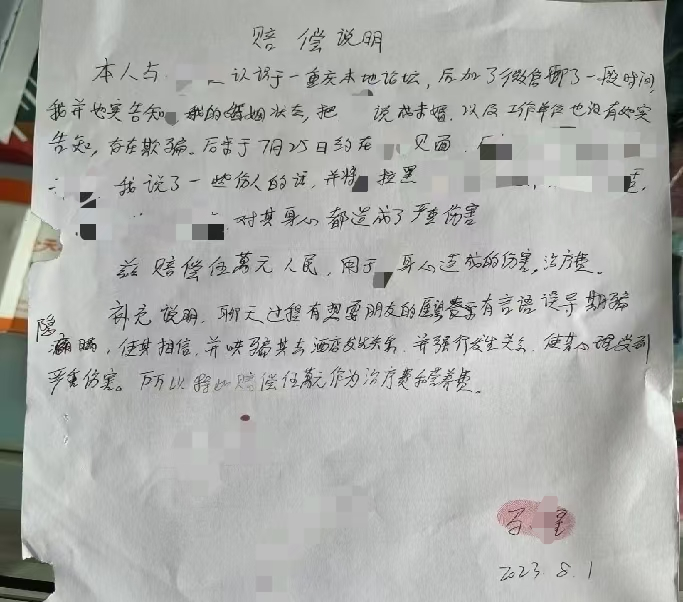 赔偿说明
本人与 认识于一重庆本地论坛，后加了微信聊了一段时间，
我并如实告知 我的婚姻状态，把 说成未婚，以及工作单位也没有如实
告知，存在欺骗。后来于7月25日约在 见面，
我说了一些伤人的话，并将 拉黑
对其身心都造成了严重伤害
兹赔偿伍萬元人民，用于 身心造成的伤害，治疗费。
补充说明，聊天过程有想要朋友的 有言语误导 欺骗
隐瞒，使其相信，并哄骗其去酒店发生关系，并强行发生关系，使其心理受到
严重伤害。 所以 赔偿伍萬元作为治疗费和营养费。
2023 8.1